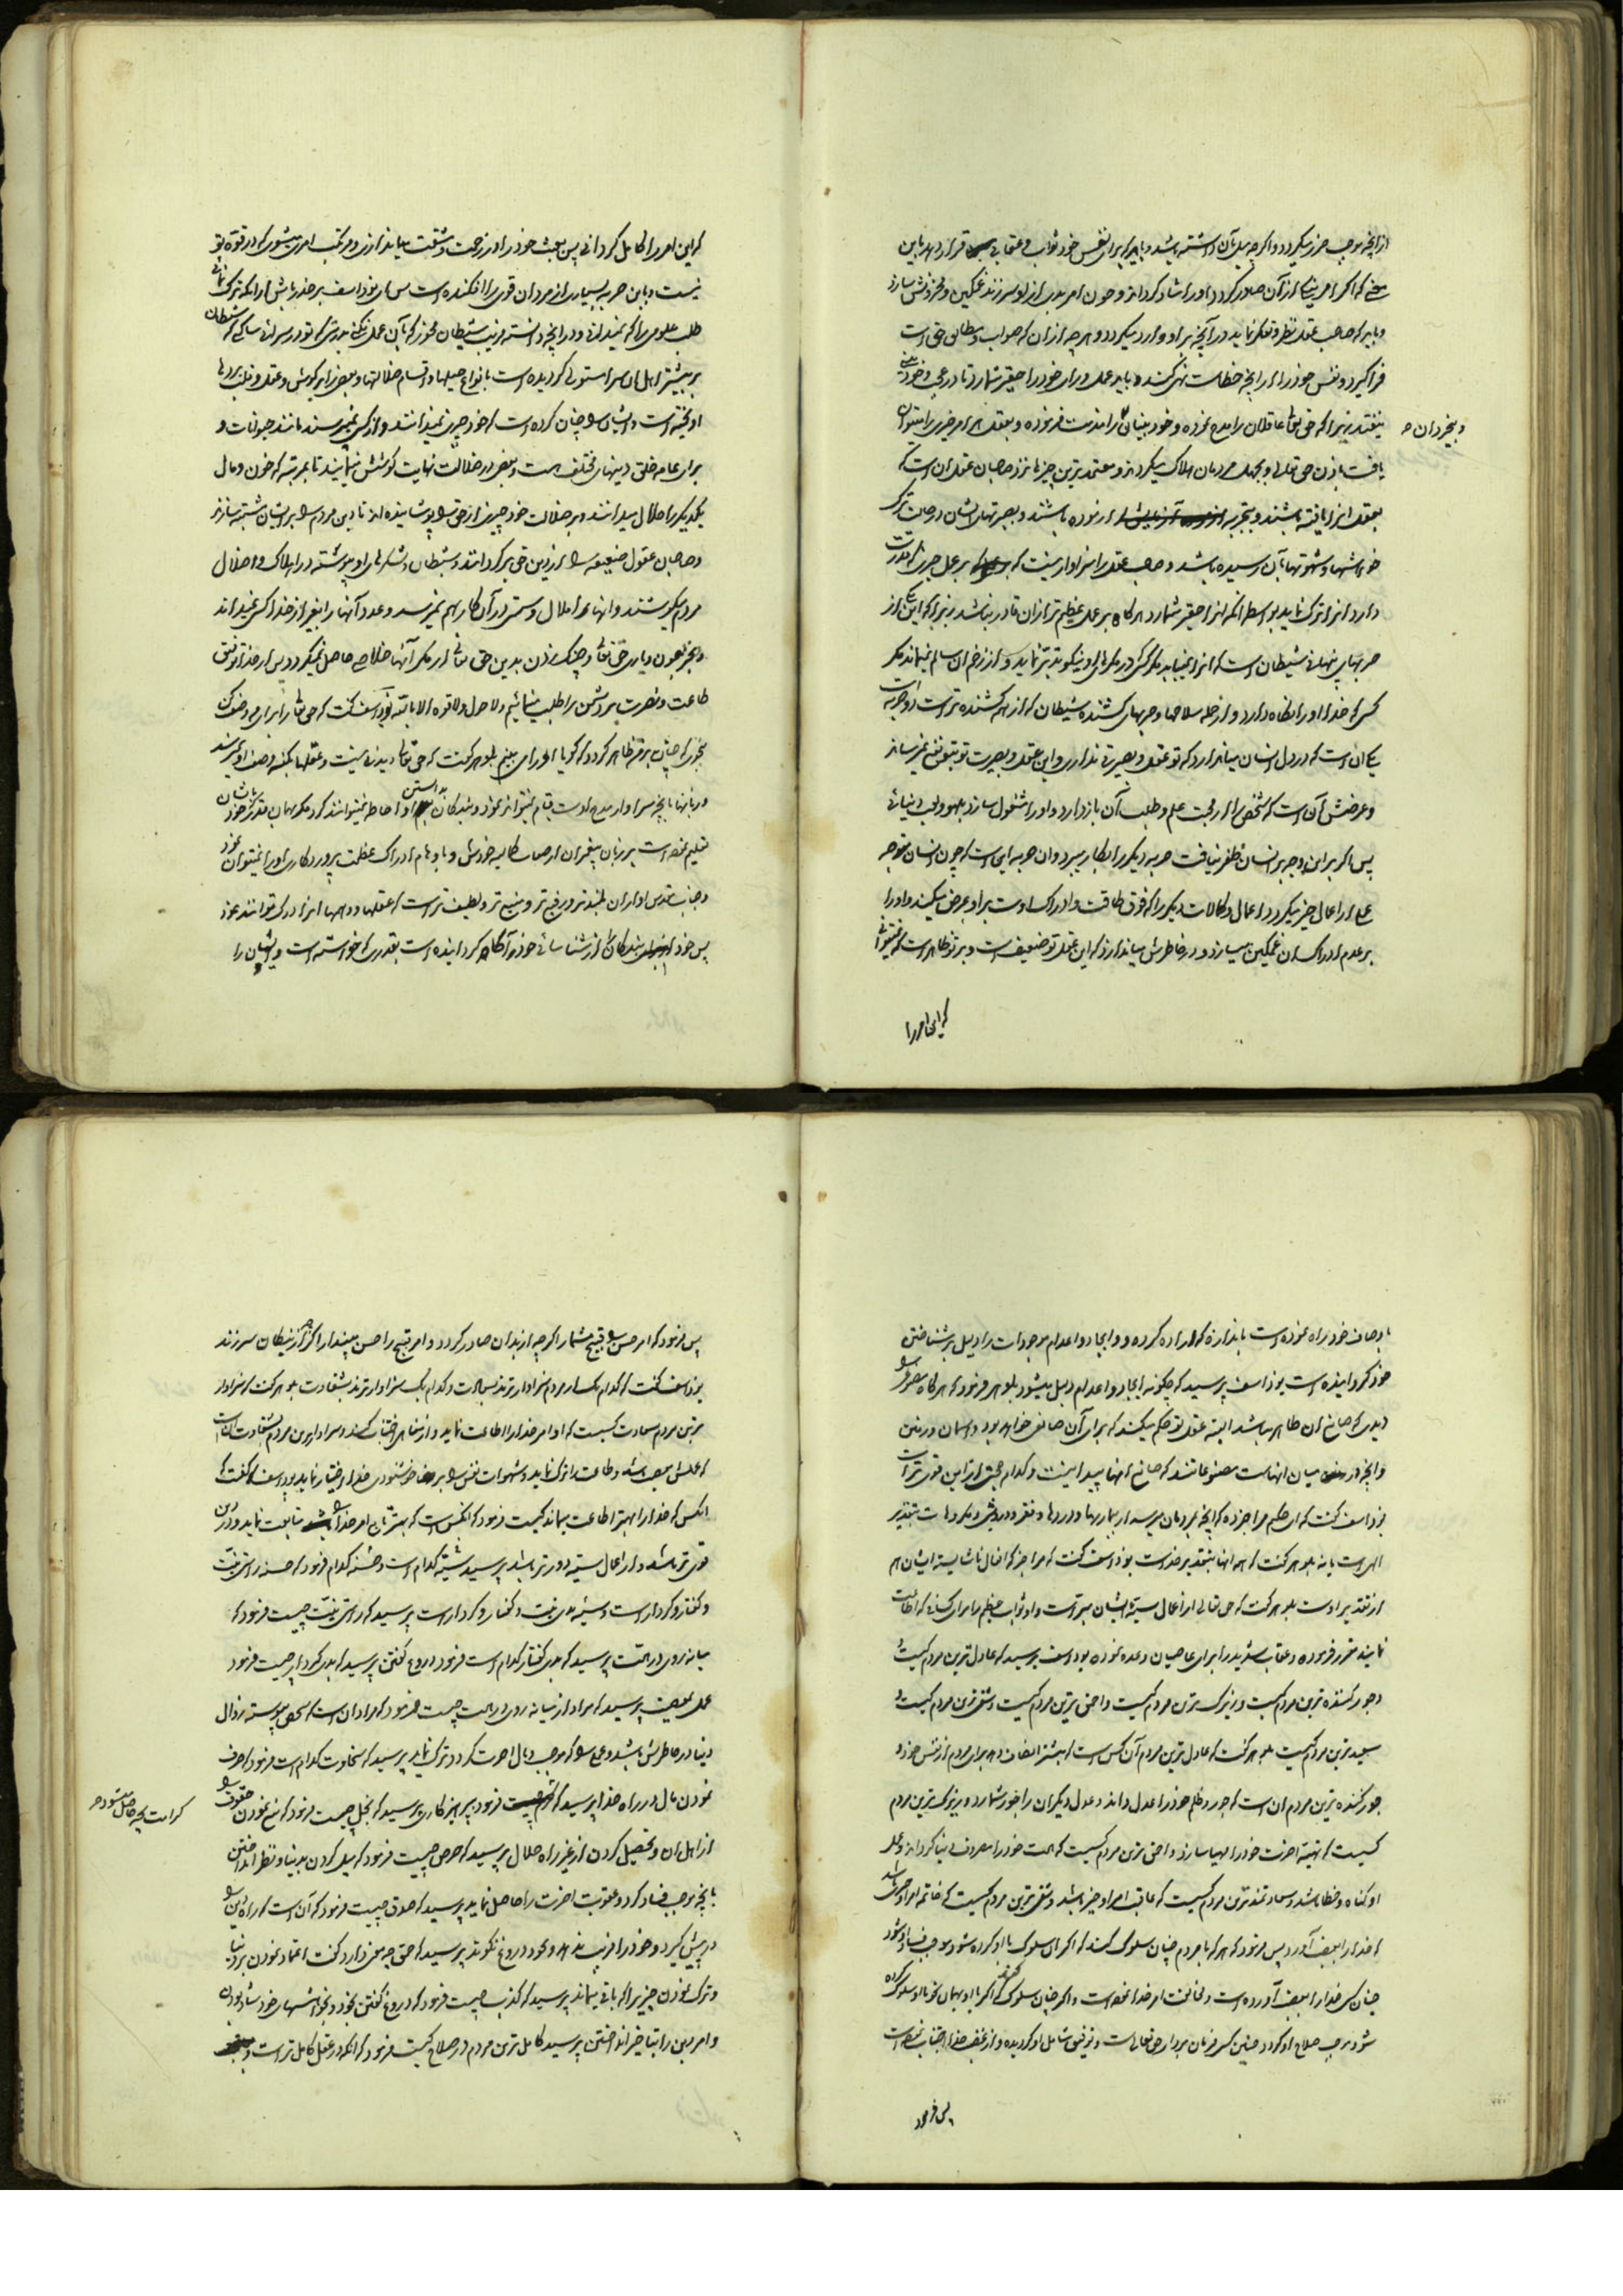 از آنچه موجب حزن میگردد و اگر چه میل بآن داشته باشد و باید که برای نفس خود ثواب و عقابی قرار دهد باین
معنی که اگر امر نیکی از آن صادر گردد او را شاد گرداند و چون امر بدی از او سر زند غمگین و محزونش سازد
و باید که صاحب عقل نظر و تفکر نماید در آنچه بر او وارد میگردد و هر چه از آن که صواب و مطابق حق است
فرا گیرد و نفس خود را از آنچه خطاست نهی کند و باید عمل و رای خود را حقیر شمارد تا در عجب و خودبینی
نیفتد زیرا که حق تعالی عاقلان را مدح نموده و خودبینان را مذمت فرموده و بعقل هر امر خیری را میتوان
و بیخردان
یافت باذن حق تعالی و بجهل مردمان هلاک میگردند و معتمدترین چیزها نزد صاحبان عقل آن است که
بعقل آنرا یافته باشند و بتجربه آزموده باشند و بصیرتهای ایشان در حالت ترک
خواهشها و شهوتها بآن رسیده باشد و صاحب عقل را سزاوار نیست که بر عمل خیری که قدرت
دارد آنرا ترک نماید بواسطه آنکه آنرا حقیر شمارد هرگاه بر عمل عظیم‌تر از آن قادر نباشد زیرا که این یکی از
حربهای پنهانی شیطان است که آنرا نمیبیند مگر کسی که در مکرهای او نیکو تدبر نماید و از زخم آن سالم نمیماند مگر
کسی که خدا او را نگاه دارد و از جمله سلاحها و حربهای کشنده شیطان که از همه کشنده‌تر است دو حربه است
یکی آن است که در دل انسان میاندازد که تو عقل و بصیرتی نداری و این عقل و بصیرت تو بتو نفعی نمیرساند
و غرضش آن است که شخص را از محبت علم و طلب آن باز دارد و او را مشغول سازد بلهو و لعب دنیائی
پس اگر بر این وجه بر انسان ظفر نیافت حربه دیگر را بکار میبرد و آن حربه این است که چون انسان متوجه
علم و اعمال خیر میگردد اعمال و کمالات دیگر را که فوق طاقت و ادراک اوست بر او عرض میکند و او را
بر عدم ادراک آن غمگین میسازد و در خاطرش میاندازد که این عقل تو ضعیف است و بر تو ظاهر است که نمیتوانی
که این امر را
که این امر را کامل گردانی پس بعبث خود را در زحمت و مشقت میاندازی و مرتکب امری میشوی که در قوه تو
نیست و باین حربه بسیاری از مردان قوی را افکنده است پس ای یوذاسف بر حذر باش از آنکه ترک نمائی
طلب علومی را که نمیدانی و در آنچه دانسته فریب شیطان مخور که بآن عمل نکنی بدرستی که تو در سرائی ساکنی که شیطان
بر بیشتر اهل آن سرا مستولی گردیده است بانواع حیلها و اقسام ضلالتها و بعضی را بر گوش و عقل و دل پردها
آویخته است و ایشان را چنان کرده است که خود چیزی نمیدانند و از کسی نمیپرسند مانند حیوانات و
برای عامه خلق دینهای مختلف هست و بعضی در ضلالت نهایت کوشش مینمایند تا بمرتبه که خون و مال
یکدیگر را حلال میدانند و بر ضلالت خود چیزی از حق را پوشانیده‌اند تا دین مردم را بر ایشان مشتبه سازند
و صاحبان عقول ضعیفه را از دین حق برگردانند و شیطان و لشکرهای او پیوسته در اهلاک و اضلال
مردم میکوشند و آنها را ملال و سستی در آن کار بهم نمیرسد و عدد آنها را بغیر از خدا کسی نمیداند
و بجز بعون و یاری حق تعالی و چنگ زدن بدین حق تعالی از مکر آنها خلاصی حاصل نمیگردد پس از خدا توفیق
طاعت و نصرت بر دشمن را طلب مینمائیم و لا حول و لا قوه الا بالله یوذاسف گفت که حق تعالی را برای من وصف کن
بنحوی که چنان بر من ظاهر گردد که گویا او را می‌بینم بلوهر گفت که حق تعالی دیدنی نیست و عقلها بکنه وصف او نمیرسند
و زبانها بآنچه سزاوار مدح اوست قیام نمیتوانند نمود و بندگان بدانستن او احاطه نمیتوانند کرد مگر بهمان قدر که خود بایشان
تعلیم نموده است بر زبان پیغمبران از صفات کمالیه خودش و باوهام ادراک عظمت پروردگاری او را نمیتوان نمود
و جناب مقدس او از آن بلندتر و رفیع‌تر و منیع‌تر و لطیف‌تر است که عقلها و وهمها آنرا درک توانند نمود
پس خود بندگان را از شناسائی خود آگاه گردانیده است بقدری که خواسته است و ایشان را
باوصاف خود راه نموده است باندازه که اراده کرده و ایجاد و اعدام موجودات را دلیل بر شناختن
خود گردانیده است یوذاسف پرسید که چگونه ایجاد و اعدام دلیل میشود بلوهر فرمود که هر گاه مصنوعی را
دیدی که صانع آن ظاهر نباشد البته عقل تو حکم میکند که برای آن صانعی خواهد بود و آسمان و زمین
و آنچه در میان آنهاست مصنوعاتند که صانع آنها پیدا نیست و کدام حجت از این قوی‌تر است
یوذاسف گفت که ای حکیم مرا خبر ده که آنچه بمردمان میرسد از بیماریها و دردها و فقر و درویشی و مکروهات بتقدیر
الهی است یا نه بلوهر گفت که همه آنها بتقدیر خداست یوذاسف گفت که مرا خبر ده که افعال ناشایسته ایشان هم
از تقدیر اوست بلوهر گفت که حق تعالی از اعمال سیئه ایشان مبرّاست و او ثواب عظیم را برای کسانی که اطاعت
نمایند مقرر فرموده و عقاب شدید را برای عاصیان وعده نموده یوذاسف پرسید که عادل‌ترین مردم کیست
و جور کننده‌ترین مردم کیست و زیرک‌ترین مردم کیست و احمق‌ترین مردم کیست و شقی‌ترین مردم کیست و
سعیدترین مردم کیست بلوهر گفت که عادل‌ترین مردم آن کس است که بیشتر انصاف دهد برای مردم از نفس خود و
جور کننده‌ترین مردم آن است که جور و ظلم خود را عدل داند و عدل دیگران را جور شمارد و زیرک‌ترین مردم
کسیست که تهیه آخرت خود را مهیا سازد و احمق‌ترین مردم کسیست که همت خود را مصروف دنیا گرداند و عمل
او گناه و خطا باشد و سعادتمندترین مردم کسیست که عاقبت امر او خیر باشد و شقی‌ترین مردم کسیست که خاتمه امر او چیزی باشد
که خدا را بغضب آورد پس فرمود که هر که با مردم چنان سلوک کند که اگر آن سلوک با او کرده شود موجب فساد او شود
چنان کس خدا را بغضب آورده است و مخالفت امر خدا نموده است و اگر چنان سلوک کند که اگر با او بهمان نحو سلوک کرده
شود موجب صلاح او گردد چنین کس فرمان بردار حق تعالی است و توفیق شامل او گردیده و از غضب خدا اجتناب نموده است
پس فرمود
پس فرمود که امر حسن را قبیح مشمار اگر چه از بدان صادر گردد و امر قبیح را حسن مپندار اگر چه از نیکان سر زند
یوذاسف گفت که کدام یک از مردم سزاوارترند بسعادت و کدام یک سزاوارترند بشقاوت بلوهر گفت سزاوار
ترین مردم بسعادت کسیست که اوامر خدا را اطاعت نماید و از مناهی اجتناب کند و سزاوارترین مردم بشقاوت آن است
که عملش بمعصیت باشد و طاعت را ترک نماید و شهوات نفس را بر خوشنودی خدا اختیار نماید یوذاسف گفت که
آنکس که خدا را بهتر اطاعت مینماید کیست فرمود که آنکس است که بهتر تابع امر خدا را متابعت نماید و در دین
قوی‌تر باشد و از اعمال سیئه دورتر باشد پرسید سیئه کدام است و حسنه کدام فرمود که حسنه راستی نیت
و گفتار و کردار است و سیئه بدی نیت و گفتار و کردار است پرسید که راستی نیت چیست فرمود که
میانه روی در همت پرسید که بدی گفتار کدام است فرمود دروغ گفتن پرسید که بدی کردار چیست فرمود
عمل بمعصیت پرسید که مراد از میانه روی در همت چیست فرمود که مراد آن است که شخص پیوسته زوال
دنیا در خاطرش باشد و طمع را که موجب وبال آخرت گردد ترک نماید پرسید که سخاوت کدام است فرمود که صرف
نمودن مال در راه خدا پرسید که کرم چیست فرمود پرهیزکاری پرسید که بخل چیست فرمود که منع نمودن حقوق را
کرامت بچه حاصل میشود
از اهل آن و تحصیل کردن از غیر راه حلال پرسید که حرص چیست فرمود که میل کردن بدنیا و نظر انداختن
بآنچه موجب فساد گردد و عقوبت آخرت را حاصل نماید پرسید که صدق چیست فرمود که آن است که راه دین را
در پیش گیرد و خود را فریب ندهد و بخود دروغ نگوید پرسید که حمق چه معنی دارد گفت اعتماد نمودن بر دنیا
و ترک نمودن چیزی را که باقی میماند پرسید که کذب چیست فرمود که دروغ گفتن بخود و بخواهشهای خود شاد بودن
و امر دین را بتاخیر انداختن پرسید کامل‌ترین مردم در صلاح کیست فرمود که آنکه در عقل کامل‌تر است